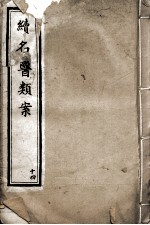 續名醫類案
十四